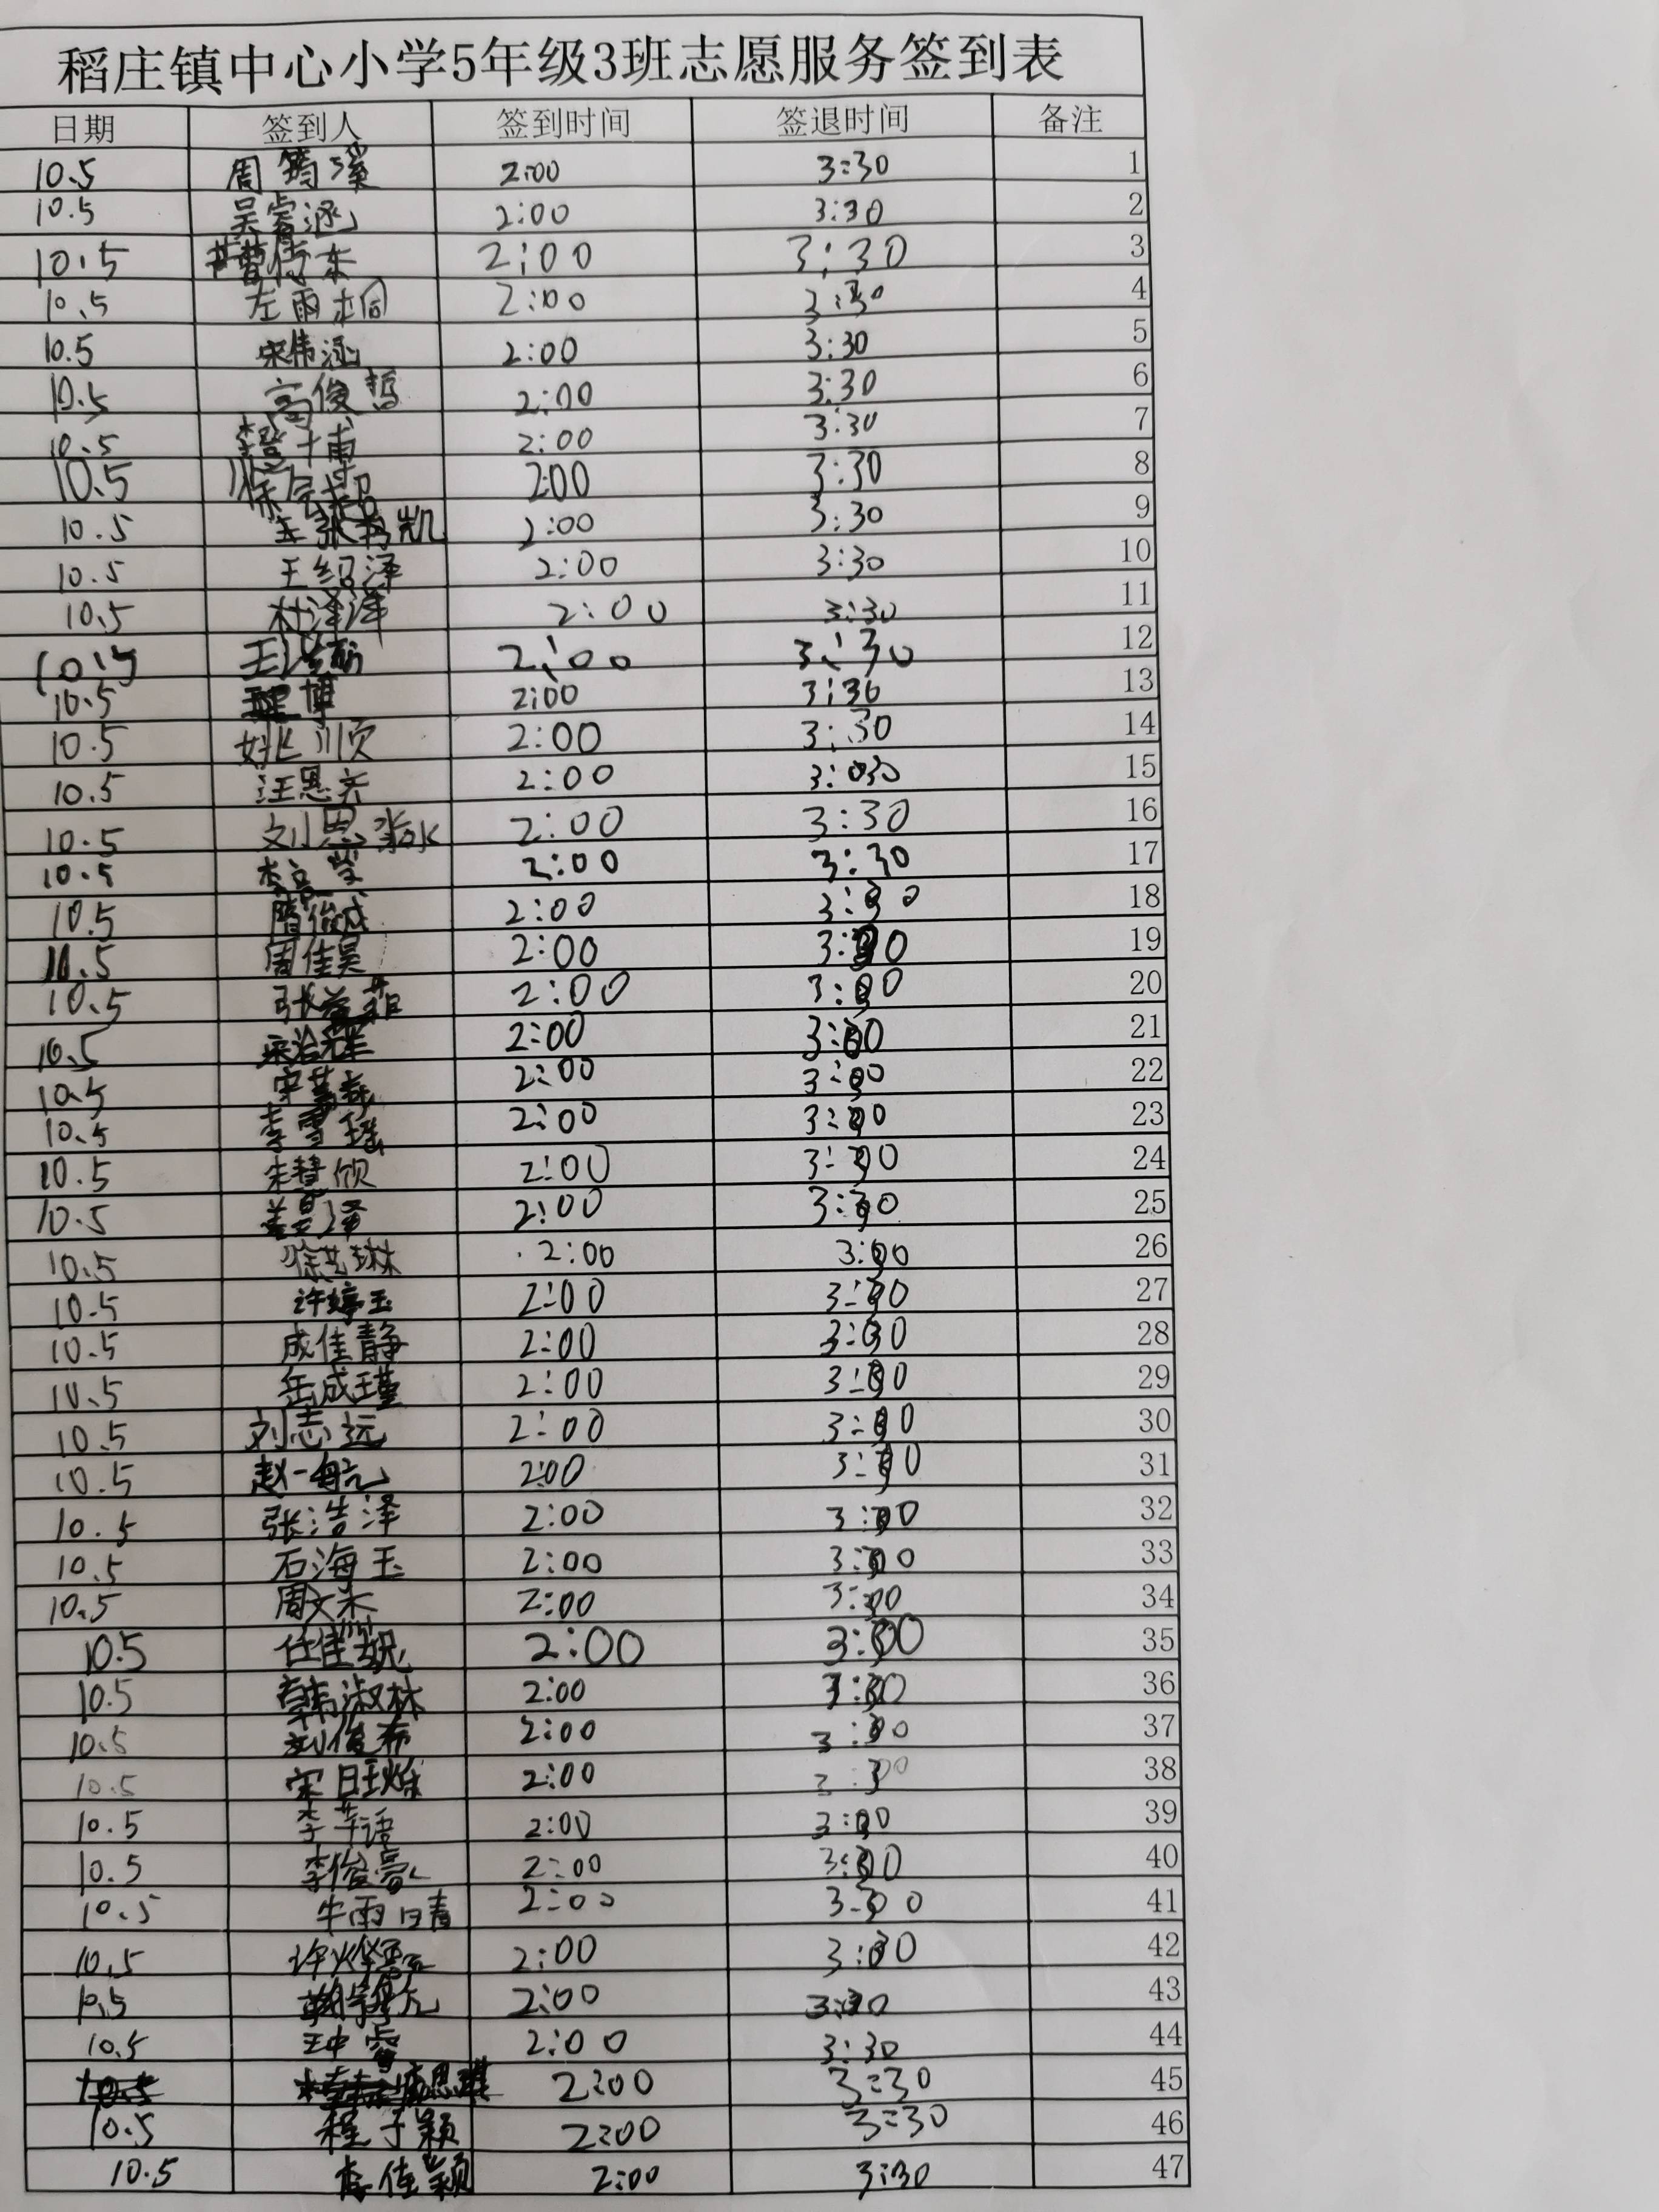 稻庄镇中心小学5年级3班志愿服务签到表
日期 签到人 签到时间 签退时间 备注
10.5 周筠溪 2:00 3:30 1
10.5 吴睿涵 2:00 3:30 2
10.5 2:00 3:30 3
10.5 左雨桐 2:00 3:30 4
10.5 宋伟涵 2:00 3:30 5
10.5 高俊哲 2:00 3:30 6
10.5 2:00 3:30 7
10.5 2:00 3:30 8
10.5 2:00 3:30 9
10.5 王绍泽 2:00 3:30 10
10.5 杜泽泽 2:00 3:30 11
10.5 2:00 3:30 12
10.5 博 2:00 3:30 13
10.5 姚顺 2:00 3:30 14
10.5 汪恩齐 2:00 3:30 15
10.5 刘恩淼 2:00 3:30 16
10.5 2:00 3:30 17
10.5 隋俊成 2:00 3:30 18
10.5 周佳昊 2:00 3:30 19
10.5 张 2:00 3:30 20
10.5 2:00 3:30 21
10.5 2:00 3:30 22
10.5 李雪瑶 2:00 3:30 23
10.5 朱慧欣 2:00 3:30 24
10.5 2:00 3:30 25
10.5 徐艺琳 2:00 3:30 26
10.5 许婷玉 2:00 3:30 27
10.5 成佳静 2:00 3:30 28
10.5 岳成瑾 2:00 3:30 29
10.5 刘志远 2:00 3:30 30
10.5 赵一航 2:00 3:30 31
10.5 张浩泽 2:00 3:30 32
10.5 石海玉 2:00 3:30 33
10.5 周文 2:00 3:30 34
10.5 任佳 2:00 3:30 35
10.5 韩淑林 2:00 3:30 36
10.5 刘俊希 2:00 3:30 37
10.5 宋 2:00 3:30 38
10.5 李 语 2:00 3:30 39
10.5 李俊豪 2:00 3:30 40
10.5 牛雨晴 2:00 3:30 41
10.5 许 2:00 3:30 42
10.5 2:00 3:30 43
10.5 2:00 3:30 44
10.5 2:00 3:30 45
10.5 程子颖 2:00 3:30 46
10.5 李佳颖 2:00 3:30 47